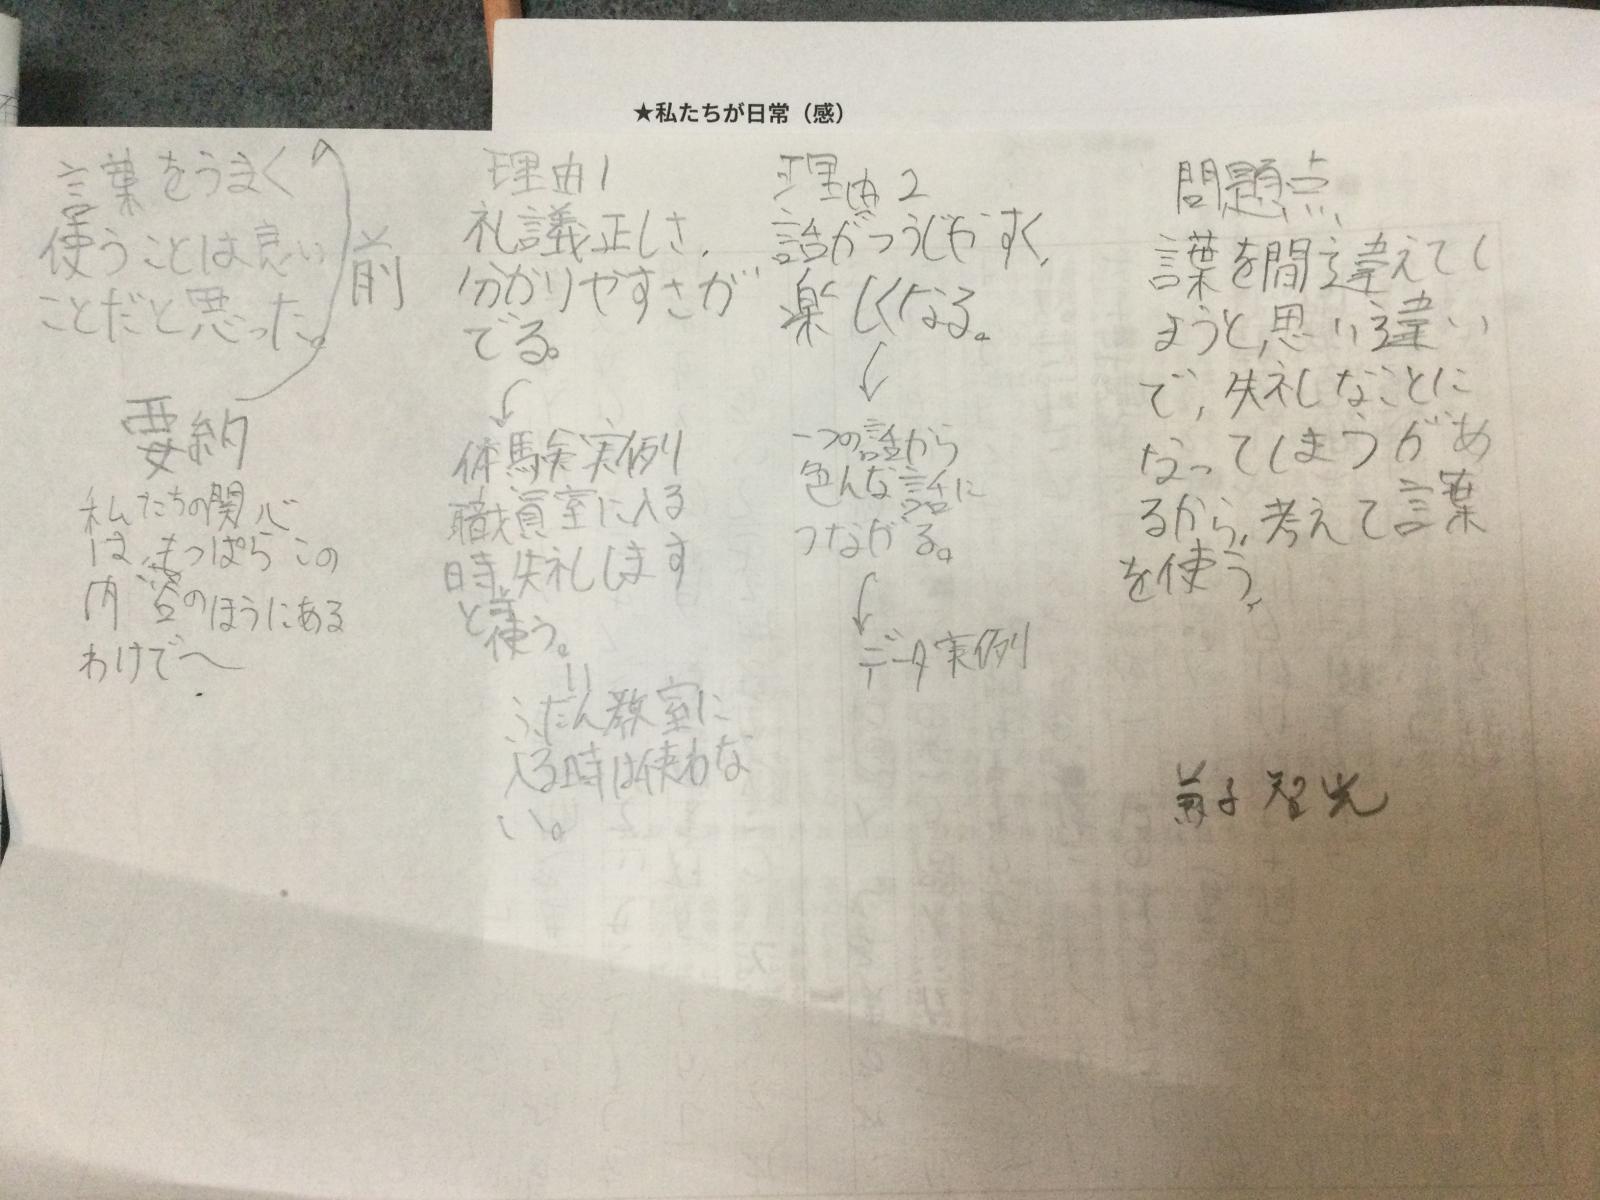 ★私たちが日常（感）
言葉をうまく
使うことは良い
ことだと思った。
前
要約
私たちの関心
は、もっぱらこの
内容のほうにある
わけで〜
理由1
礼議正しさ、
分かりやすさが
でる。
体験実例
職員室に入る
時、失礼します
と使う。
ふだん教室に
入る時は使わな
い。
理由2
話がつうじやすく、
楽しくなる。
一つの話から
色んな話に
つながる。
データ実例
問題点
言葉を間違えてし
まうと、思い違い
で、失礼なことに
なってしまうがあ
るから、考えて言葉
を使う、